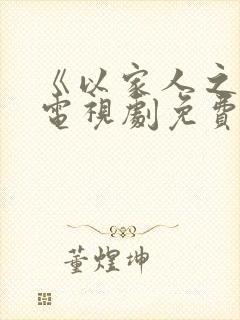 《以家人之
電視劇免費
董煌坤